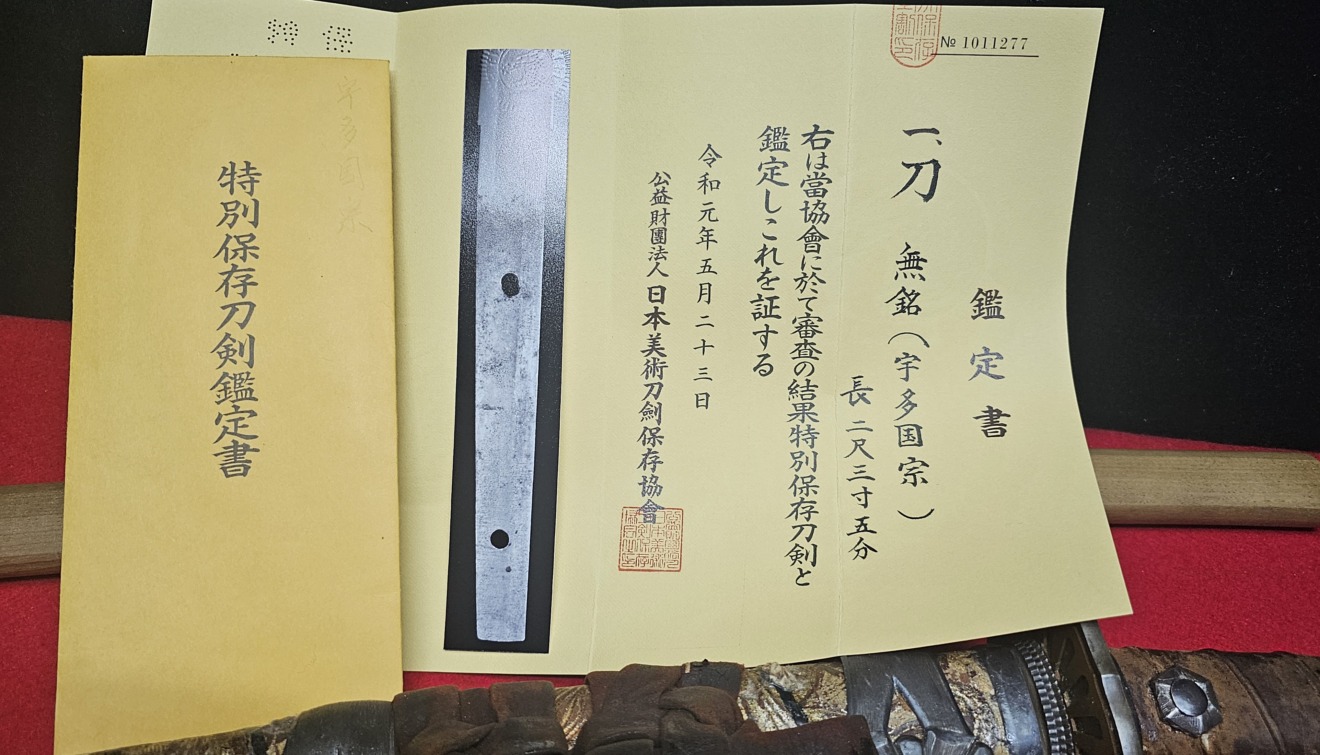 № 1011277
鑑定書
一、刀 無銘(宇多国宗)
長二尺三寸五分
右は當協會に於て審査の結果特別保存刀剣と
鑑定しこれを証する
令和元年五月二十三日
公益財團法人日本美術刀劍保存協會
特別保存刀剣鑑定書
宇多国宗
特保